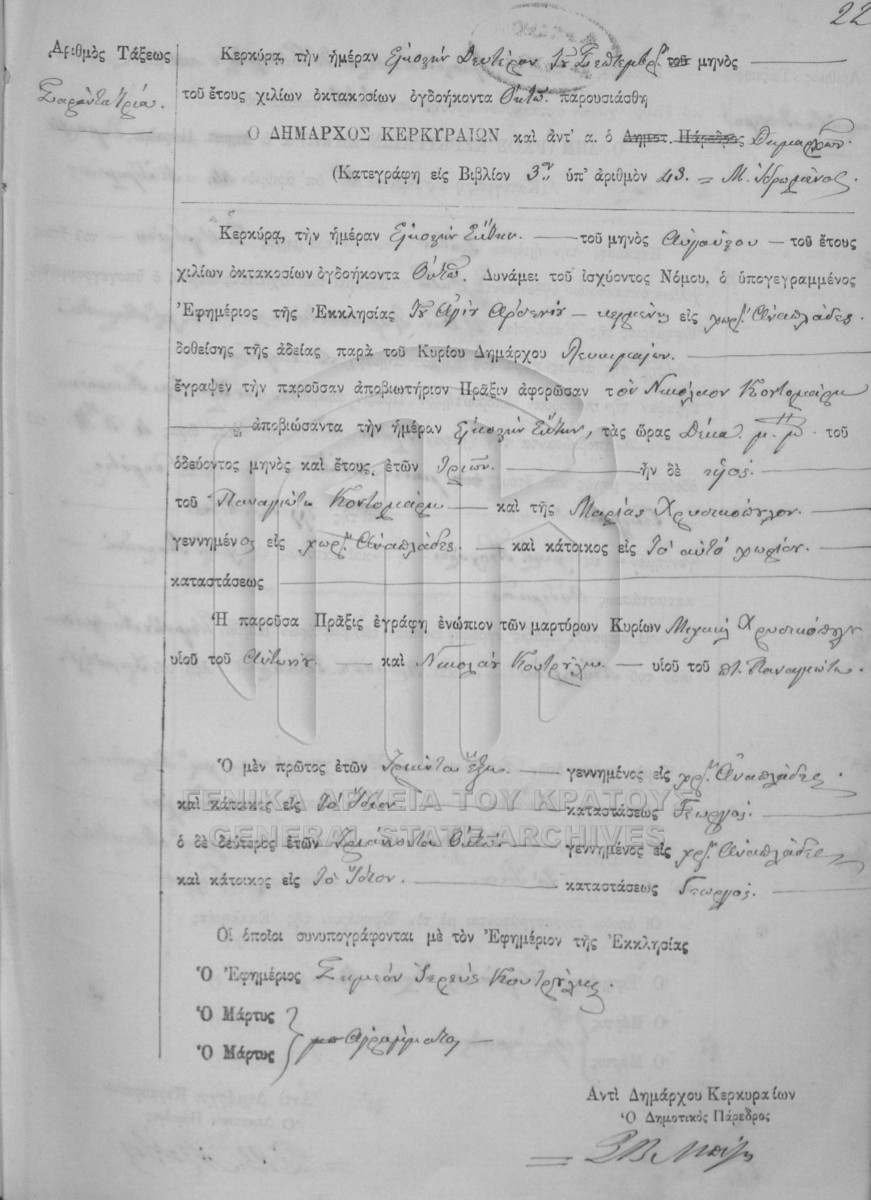 22
Ἀριθμὸς Τάξεως
Σαράντα τρία.
Κερκύρᾳ, τὴν ἡμέραν Εἰκοστὴν Δευτέραν τοῦ Σεπτεμβρ. τοῦ μηνὸς
τοῦ ἔτους χιλίων ὀκτακοσίων ὀγδοήκοντα Ὀκτὼ. παρουσιάσθη
Ο ΔΗΜΑΡΧΟΣ ΚΕΡΚΥΡΑΙΩΝ καὶ ἀντ' α. ὁ Δημοτ. Πάρεδρος Δημαρχῶν.
(Κατεγράφη εἰς Βιβλίον 3ον ὑπ' ἀριθμὸν 43. = Μ.
Κερκύρᾳ, τὴν ἡμέραν Εἰκοστὴν Ἕκτην τοῦ μηνὸς Αὐγούστου τοῦ ἔτους
χιλίων ὀκτακοσίων ὀγδοήκοντα Ὀκτὼ. Δυνάμει τοῦ ἰσχύοντος Νόμου, ὁ ὑπογεγραμμένος
Ἐφημέριος τῆς Ἐκκλησίας τοῦ Ἁγίου Ἀρσενίου κειμένης εἰς χωρ. Ἀναπλάδες.
δοθείσης τῆς ἀδείας παρὰ τοῦ Κυρίου Δημάρχου Λευκιμαίων.
ἔγραψεν τὴν παροῦσαν ἀποβιωτήριον Πρᾶξιν ἀφορῶσαν τὸν Νικόλαον Κοντομάρη
ἀποβιώσαντα τὴν ἡμέραν Εἰκοστὴν Ἕκτην, τὰς ὥρας Δέκα. μ. μ. τοῦ
ὁδεύοντος μηνὸς καὶ ἔτους, ἐτῶν τριῶν. ἦν δὲ υἱὸς
τοῦ Παναγιώτη Κοντομάρη καὶ τῆς Μαρίας Χρυσικοπούλου.
γεννημένος εἰς χωρ. Ἀναπλάδες. καὶ κάτοικος εἰς τὸ αὐτὸ χωρίον.
καταστάσεως
Ἡ παροῦσα Πρᾶξις ἐγράφη ἐνώπιον τῶν μαρτύρων Κυρίων Μιχαὴλ Χρυσικόπουλου
υἱοῦ τοῦ Ἀντωνίου. καὶ Νικολάου Κουτρούλη υἱοῦ τοῦ π. Παναγιώτη.
Ὁ μὲν πρῶτος ἐτῶν Τριάντα ἕξη. γεννημένος εἰς χωρ. Ἀναπλάδες.
καὶ κάτοικος εἰς τὸ ἴδιον καταστάσεως Γεωργὸς.
ὁ δὲ δεύτερος ἐτῶν Τριάκοντα Ὀκτὼ γεννημένος εἰς χωρ. Ἀναπλάδες
καὶ κάτοικος εἰς τὸ ἴδιον. καταστάσεως Γεωργὸς.
Οἱ ὁποῖοι συνυπογράφονται μὲ τὸν Ἐφημέριον τῆς Ἐκκλησίας
Ὁ Ἐφημέριος Συμεὸν Ἱερεὺς Κουτρούλης.
Ὁ Μάρτυς
Ὁ Μάρτυς
ἀγράμματοι
Ἀντὶ Δημάρχου Κερκυραίων
Ὁ Δημοτικὸς Πάρεδρος
ΓΕΝΙΚΑ ΑΡΧΕΙΑ ΤΟΥ ΚΡΑΤΟΥΣ
GENERAL STATE ARCHIVES